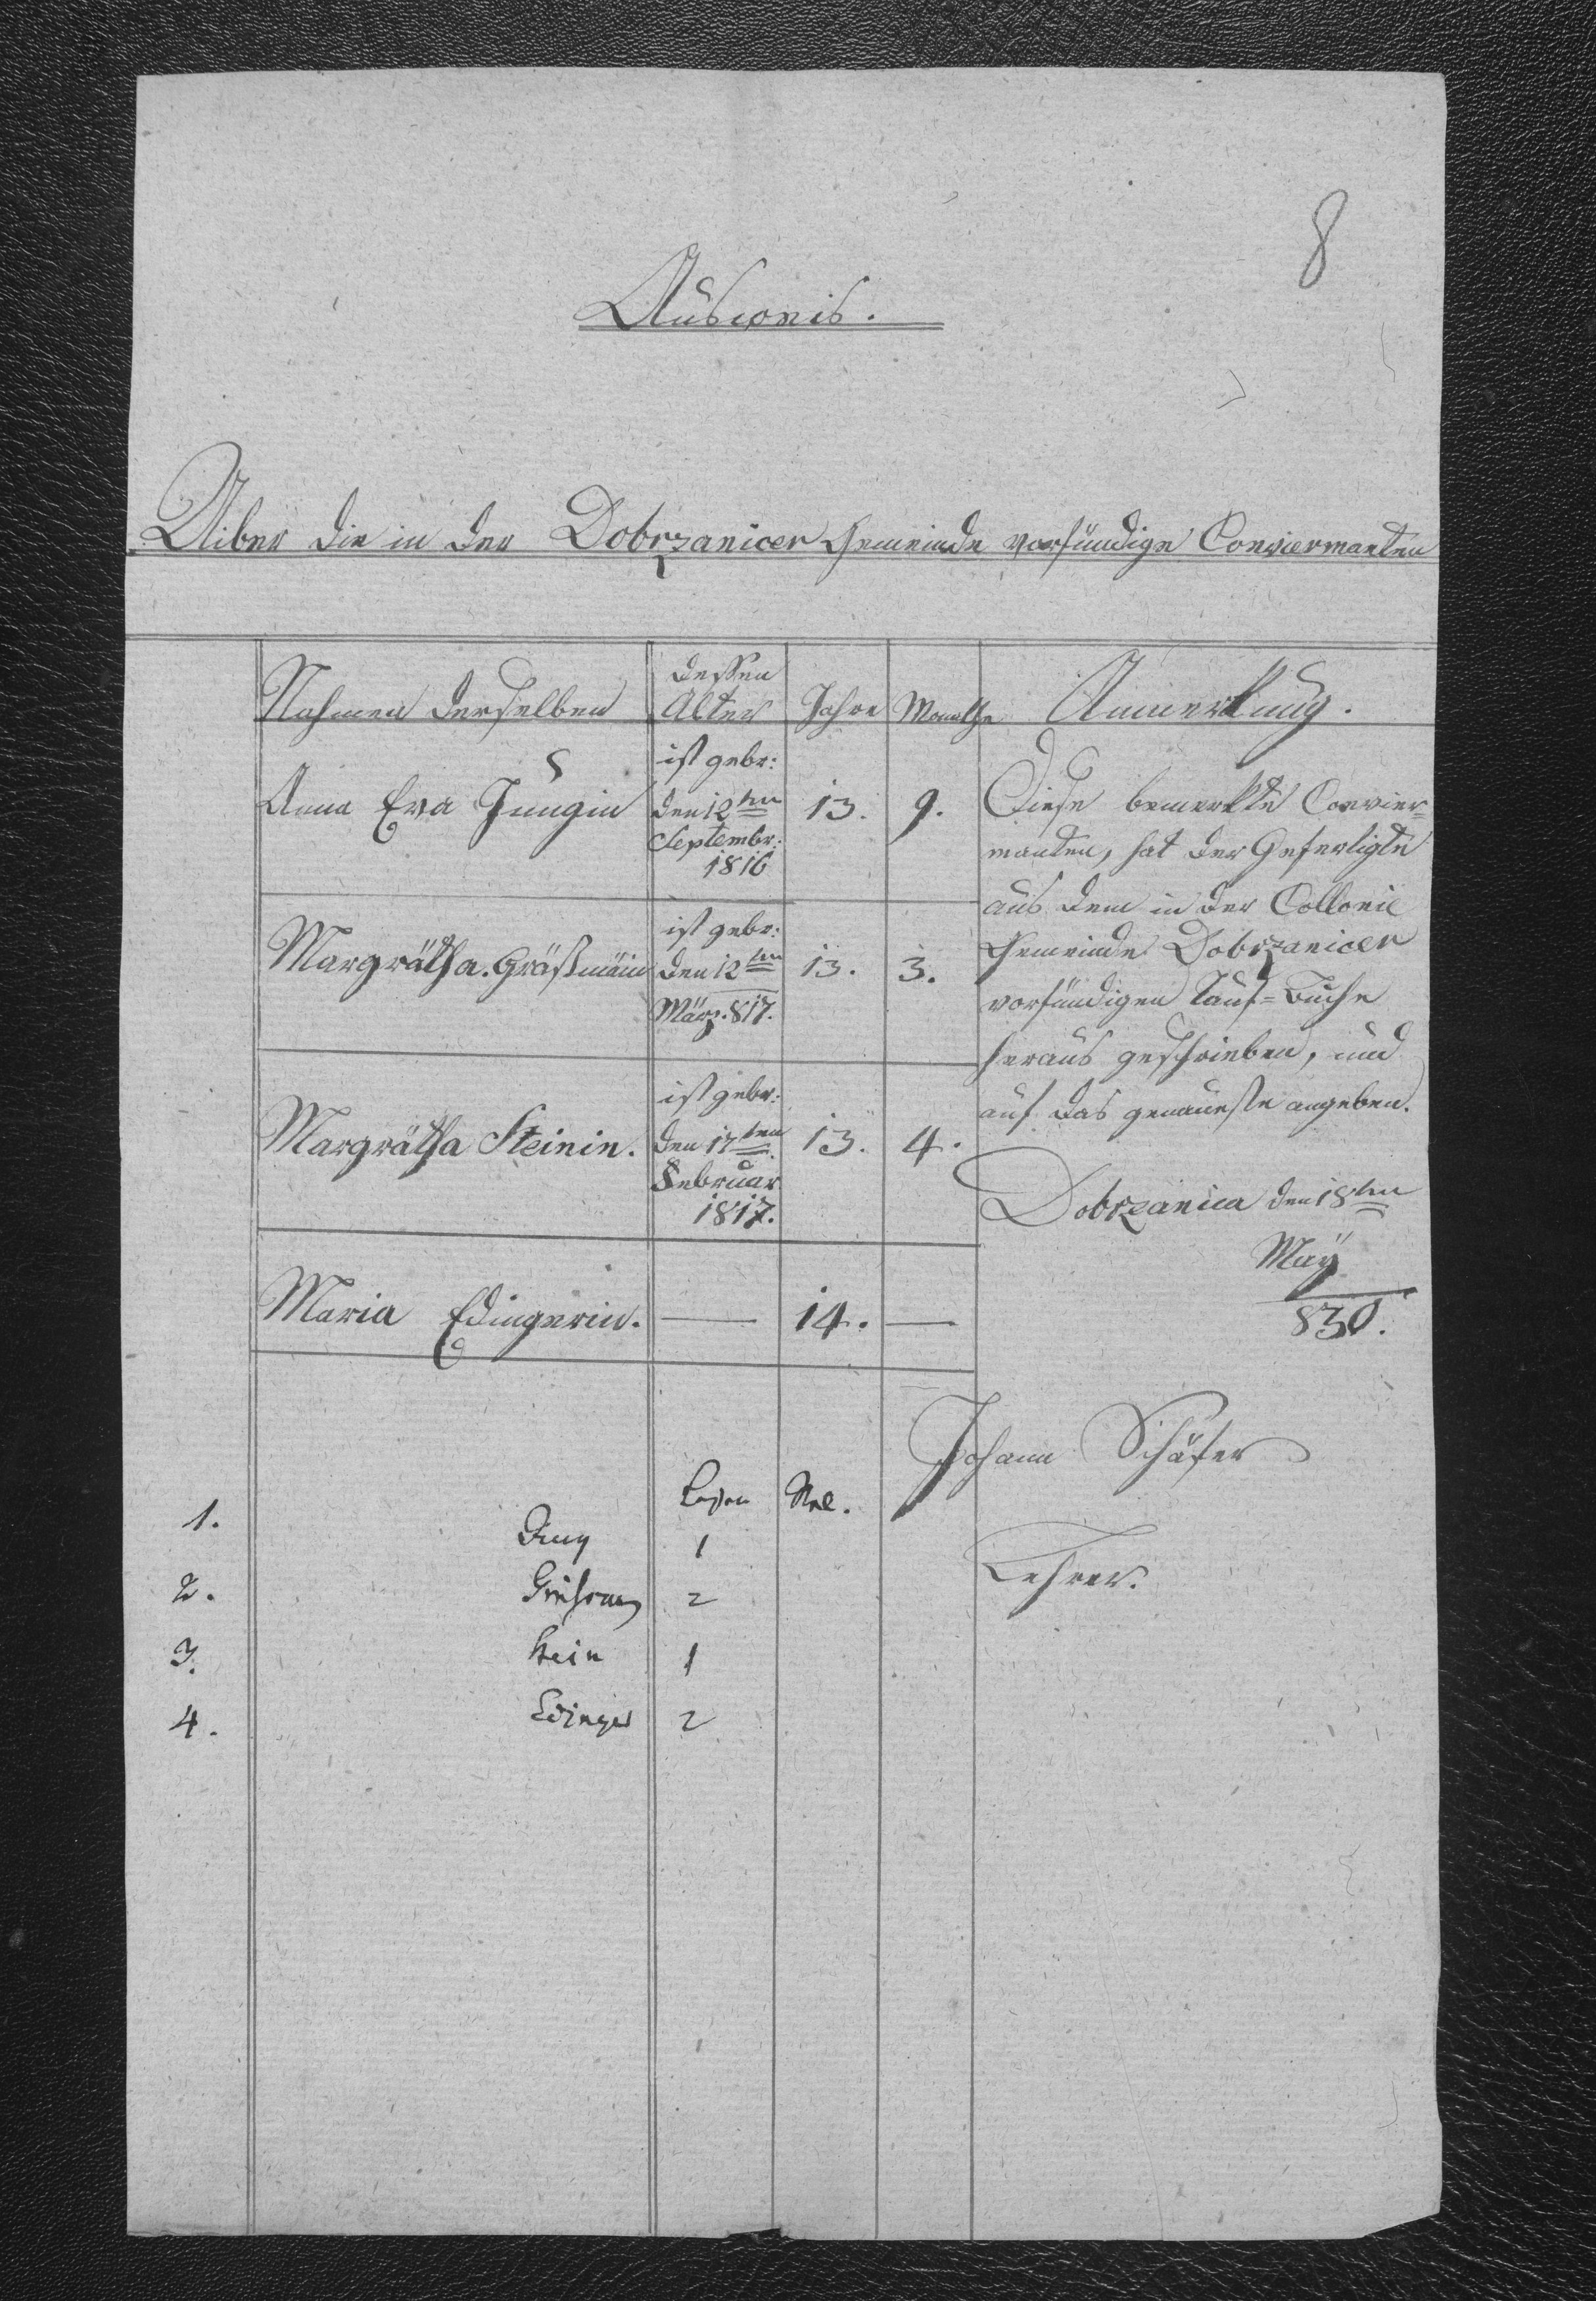 8
Ausweis.
Uiber die in der Dobrzanicer Gemeinde vorfündige Conviermanten
Nahmen derselben
dessen
Alter
Jahre
Monathe
Anmerkung.
Anna Eva Jungin
ist gebr:
den 12ten
Septembr:
1816
13.
9.
Margrätha. Gräßmänin
ist gebr:
den 12ten
März. 817.
13.
3.
Margrätha Steinin.
ist gebr:
den 17ten
Februar
1817.
13.
4.
Maria Edingerin.
—
14.
—
Diese bemerkte Convier=
manten, hat der Gefertigte
aus dem in der Collonie
Gemeinde Dobrzanicer
vorfündigen Tauf=Buche
heraus geschrieben, und
auf das genaueste angeben.
Dobrzanica den 18ten
May
830.
Johann Schäfer
Lehrer.
1. Jung 1
2. 2
3. Stein 1
4. Edinger 2